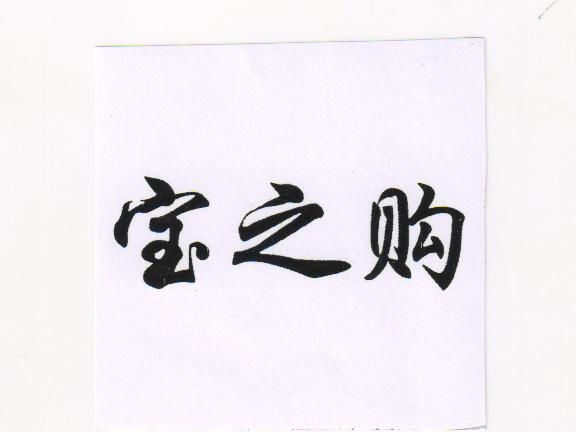 宝之购